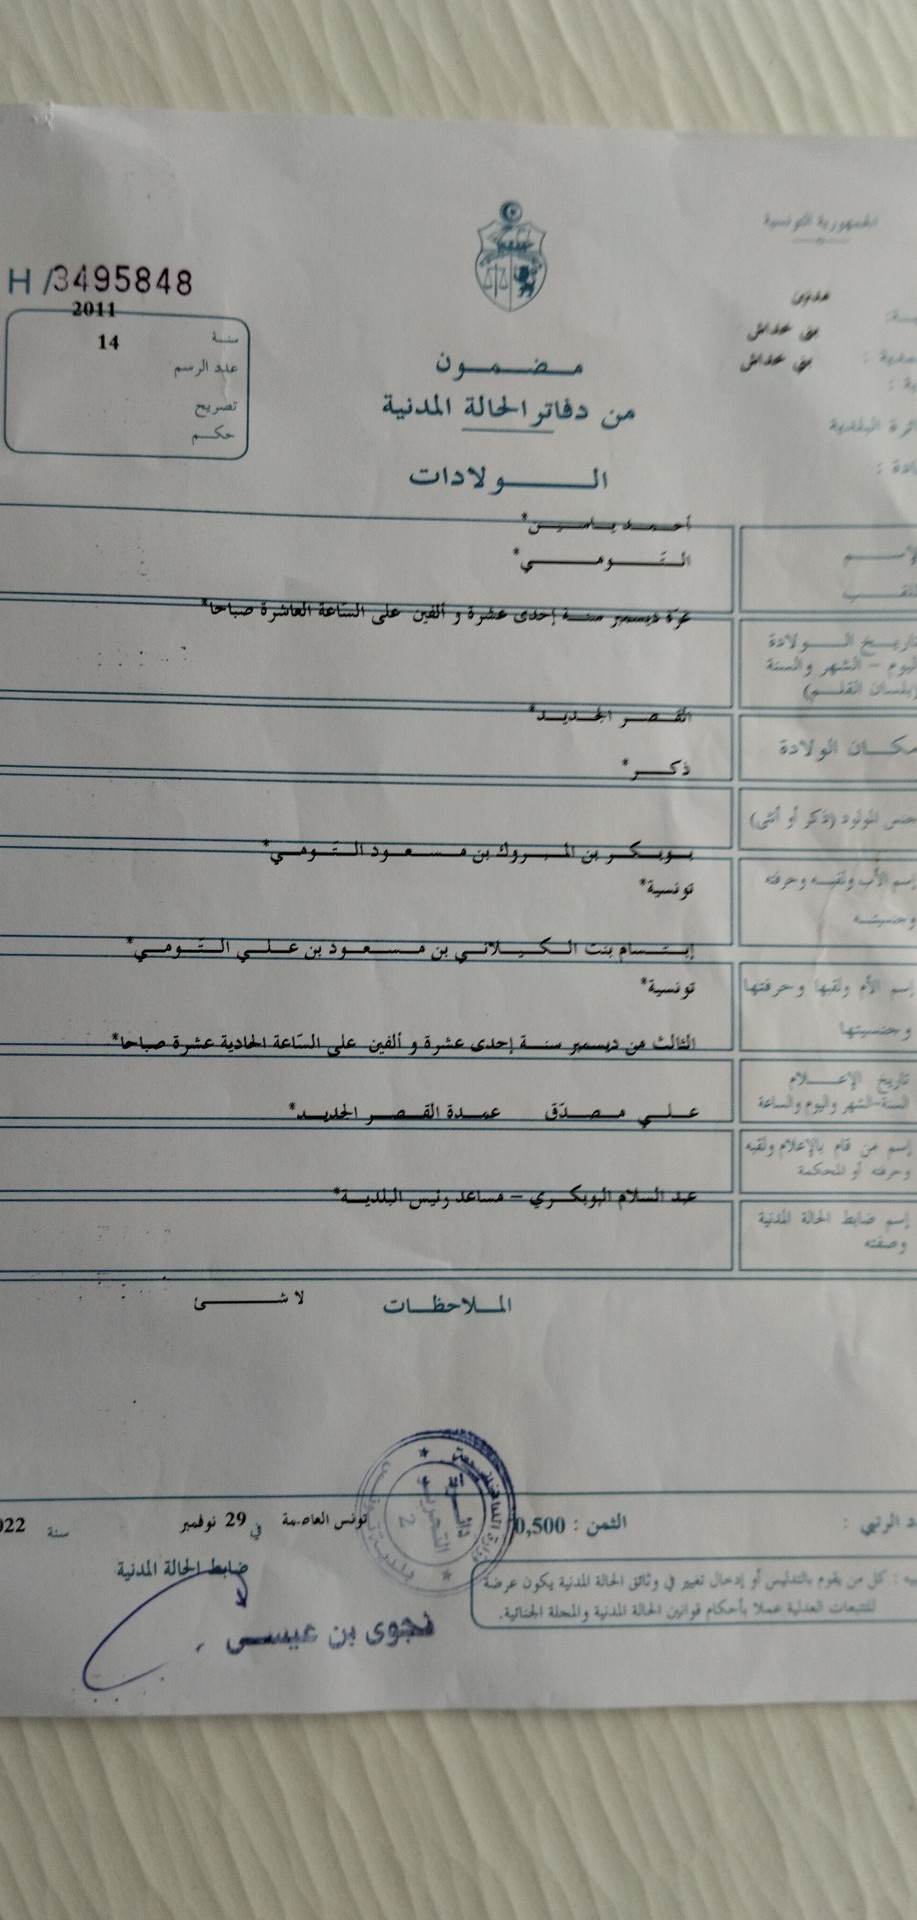 الجمهورية التونسية
H/3495848
مدنين
بني خداش
بني خداش
2011
سنة
14
عدد الرسم
تصريح
حكم
مضمون
من دفاتر الحالة المدنية
الولادات
أحمد ياسين*
الإسم
التّومي*
اللقب
غرّة ديسمبر سنة إحدى عشرة و ألفين على السّاعة العاشرة صباحا*
تاريخ الولادة
اليوم - الشهر والسنة
(بلسان القلم)
القصر الجديد*
مكان الولادة
ذكر*
جنس المولود (ذكر أو أنثى)
بوبكر بن المبروك بن مسعود التّومي*
إسم الأب ولقبه وحرفته
تونسية*
وجنسيته
إبتسام بنت الكيلاني بن مسعود بن علي التّومي*
إسم الأم ولقبها وحرفتها
تونسية*
وجنسيتها
الثالث من ديسمبر سنة إحدى عشرة و ألفين على السّاعة الحادية عشرة صباحا*
تاريخ الإعلام
السنة-الشهر واليوم والساعة
علي مصدّق عمدة القصر الجديد*
إسم من قام بالإعلام ولقبه
وحرفته أو المحكمة
عبد السلام البوبكري - مساعد رئيس البلدية*
إسم ضابط الحالة المدنية
وصفته
الملاحظات لا شئ
الثمن : 0,500
تونس العاصمة في 29 نوفمبر سنة 022
الدائرة
التحرير
2
ضابط الحالة المدنية
نجوى بن عيسى
كل من يقوم بالتدليس أو إدخال تغيير في وثائق الحالة المدنية يكون عرضة
للتتبعات العدلية عملا بأحكام قوانين الحالة المدنية والمجلة الجنائية.